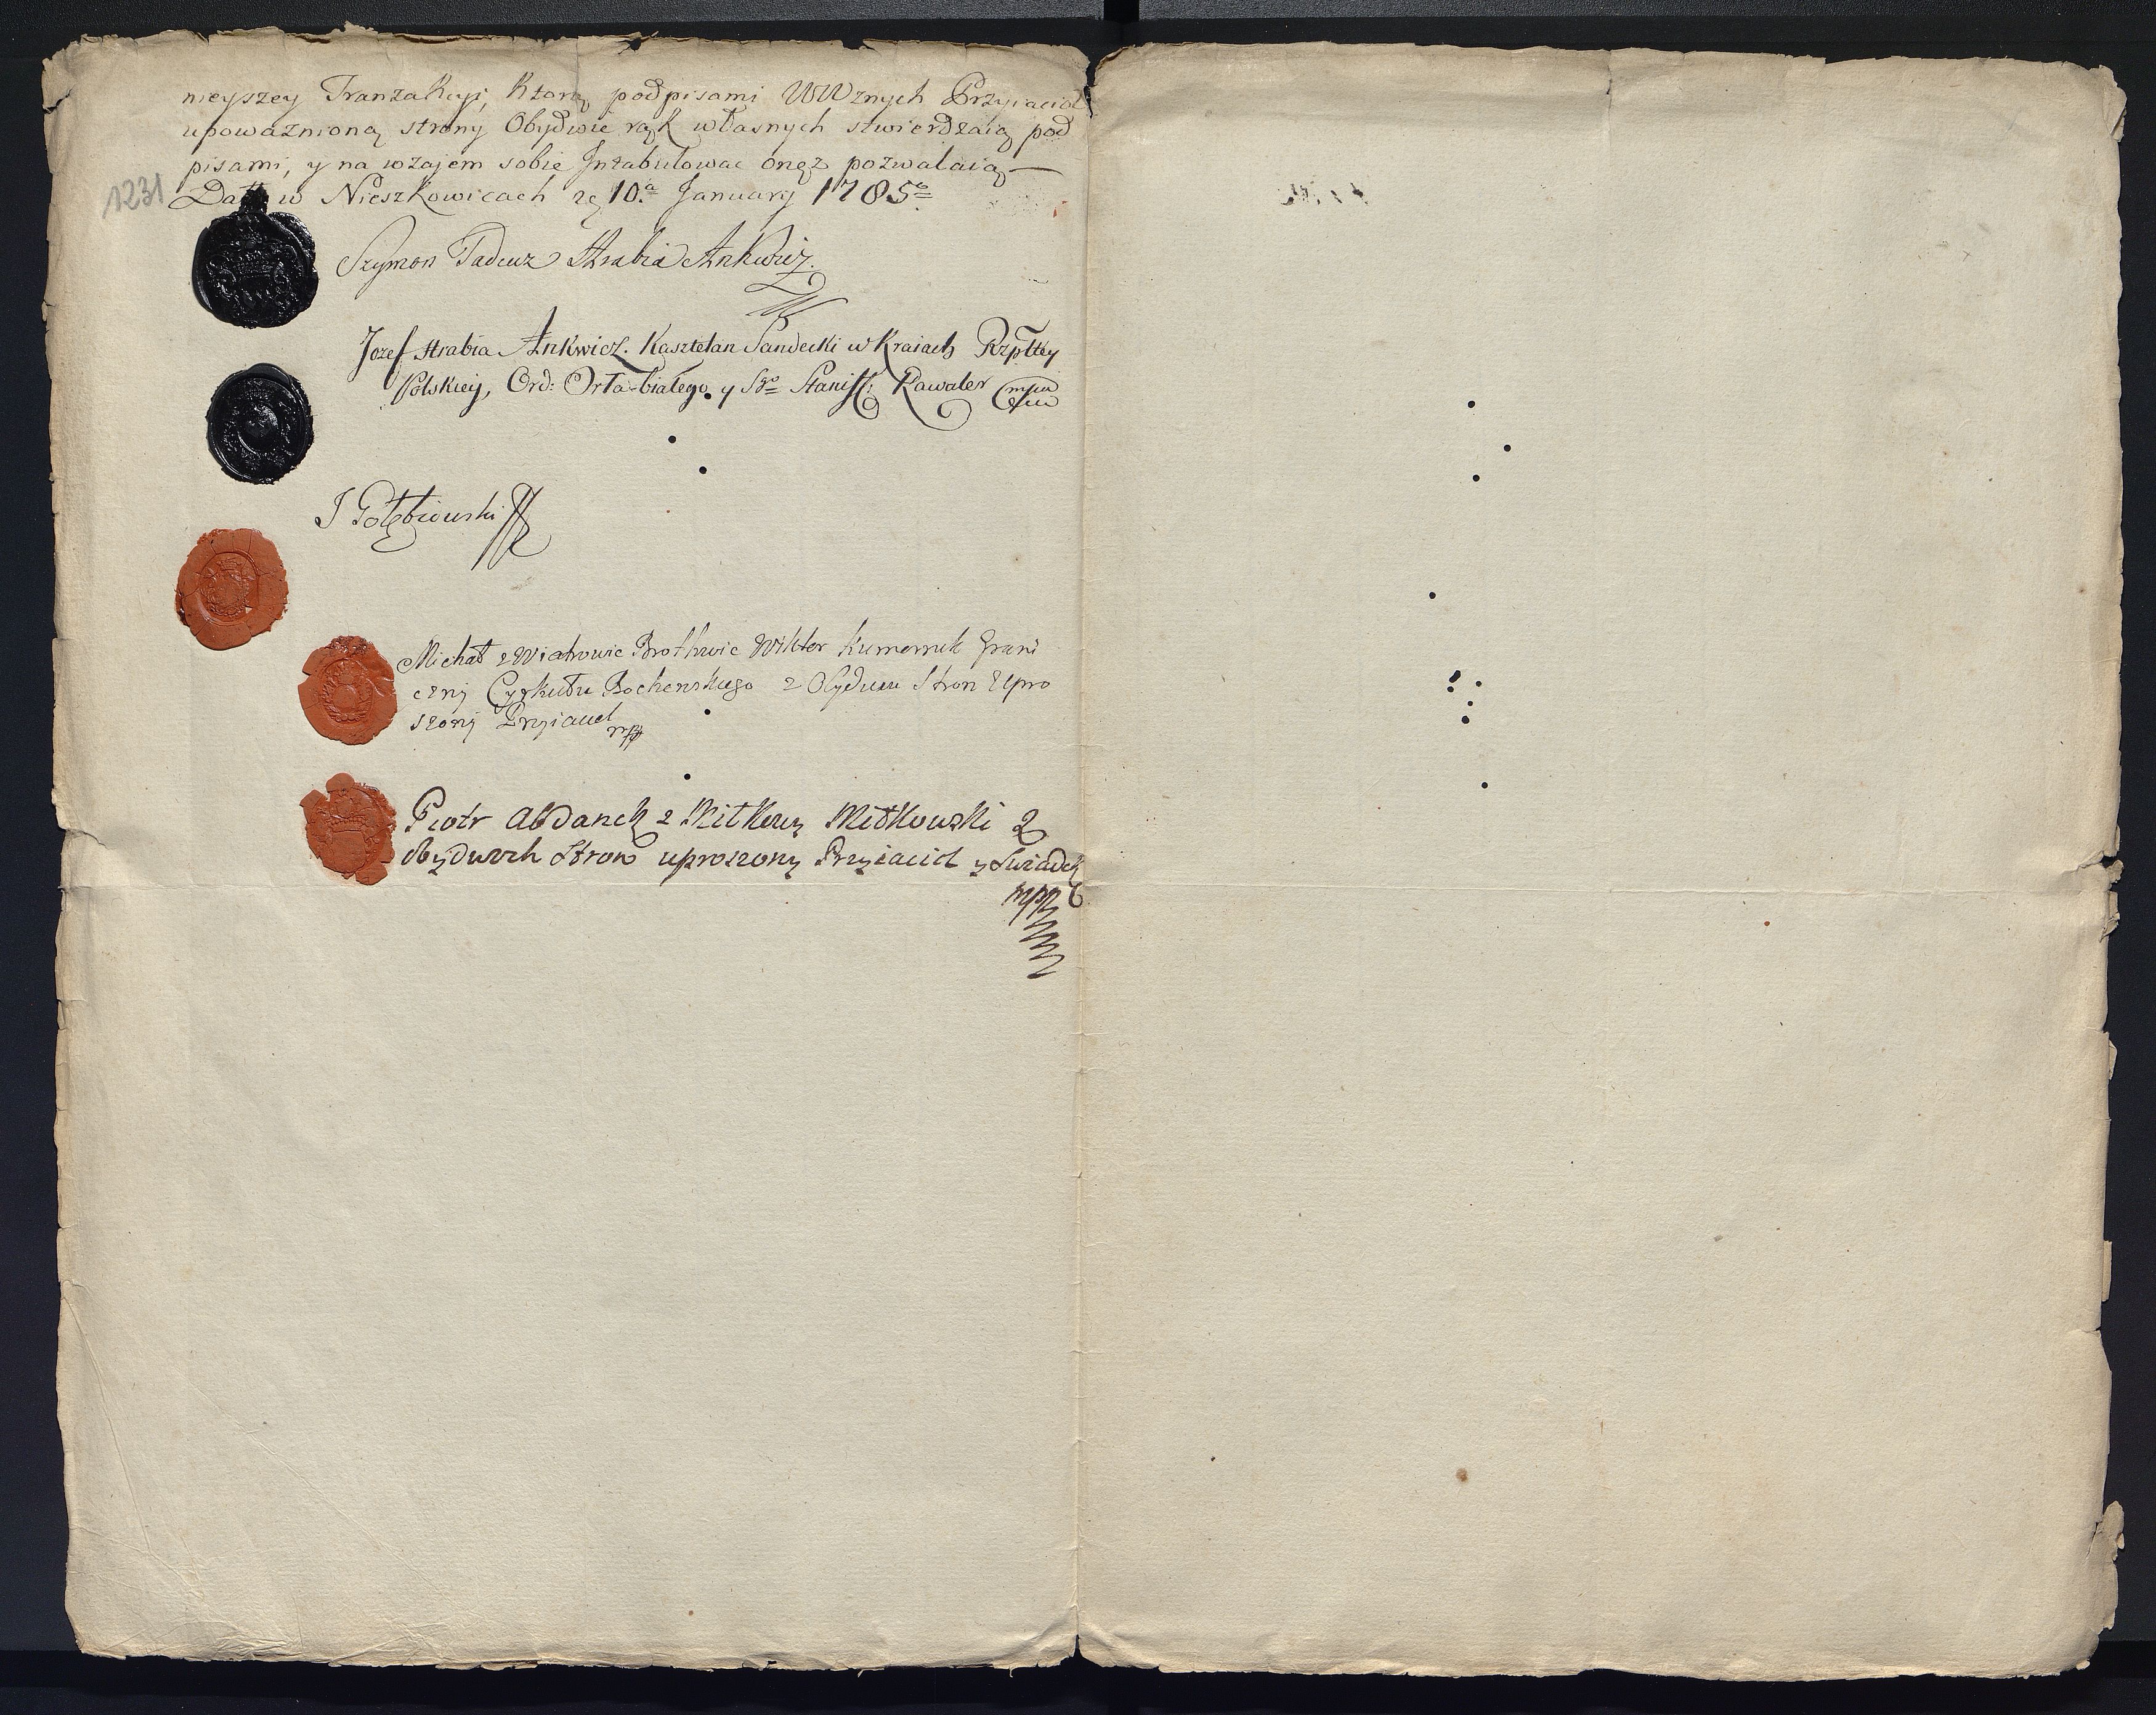 nieyszey Tranzakcyi, Ktorą podpisami WWznych Przyiacioł
upoważnioną strony Obydwie rąk własnych stwierdzaią pod
pisami, y na wzajem sobie Intabulowac onęz pozwalaią —
1231
Datt w Nieszkowicach 10.a January 1785o
Szymon Tadeuz Hrabia Ankwicz
Jozef Hrabia Ankwicz. Kasztelan Sandecki w Kraiach Rzpltey
Polskiey, Ord: Orła-białego y Sgo Stanisł: Kawaler mpa
J Gołębiowski
Michał z Wiatrowic Wiktor Kumornik Grani
czny Cyrkułu Bochenskiego z Obydwu Stron Upro
szony Przyiaciel mp
Piotr Abdank z Miłkowy Miłkowski z
obydwoch Stron uproszony Przyiaciel y Swiadek
mpp